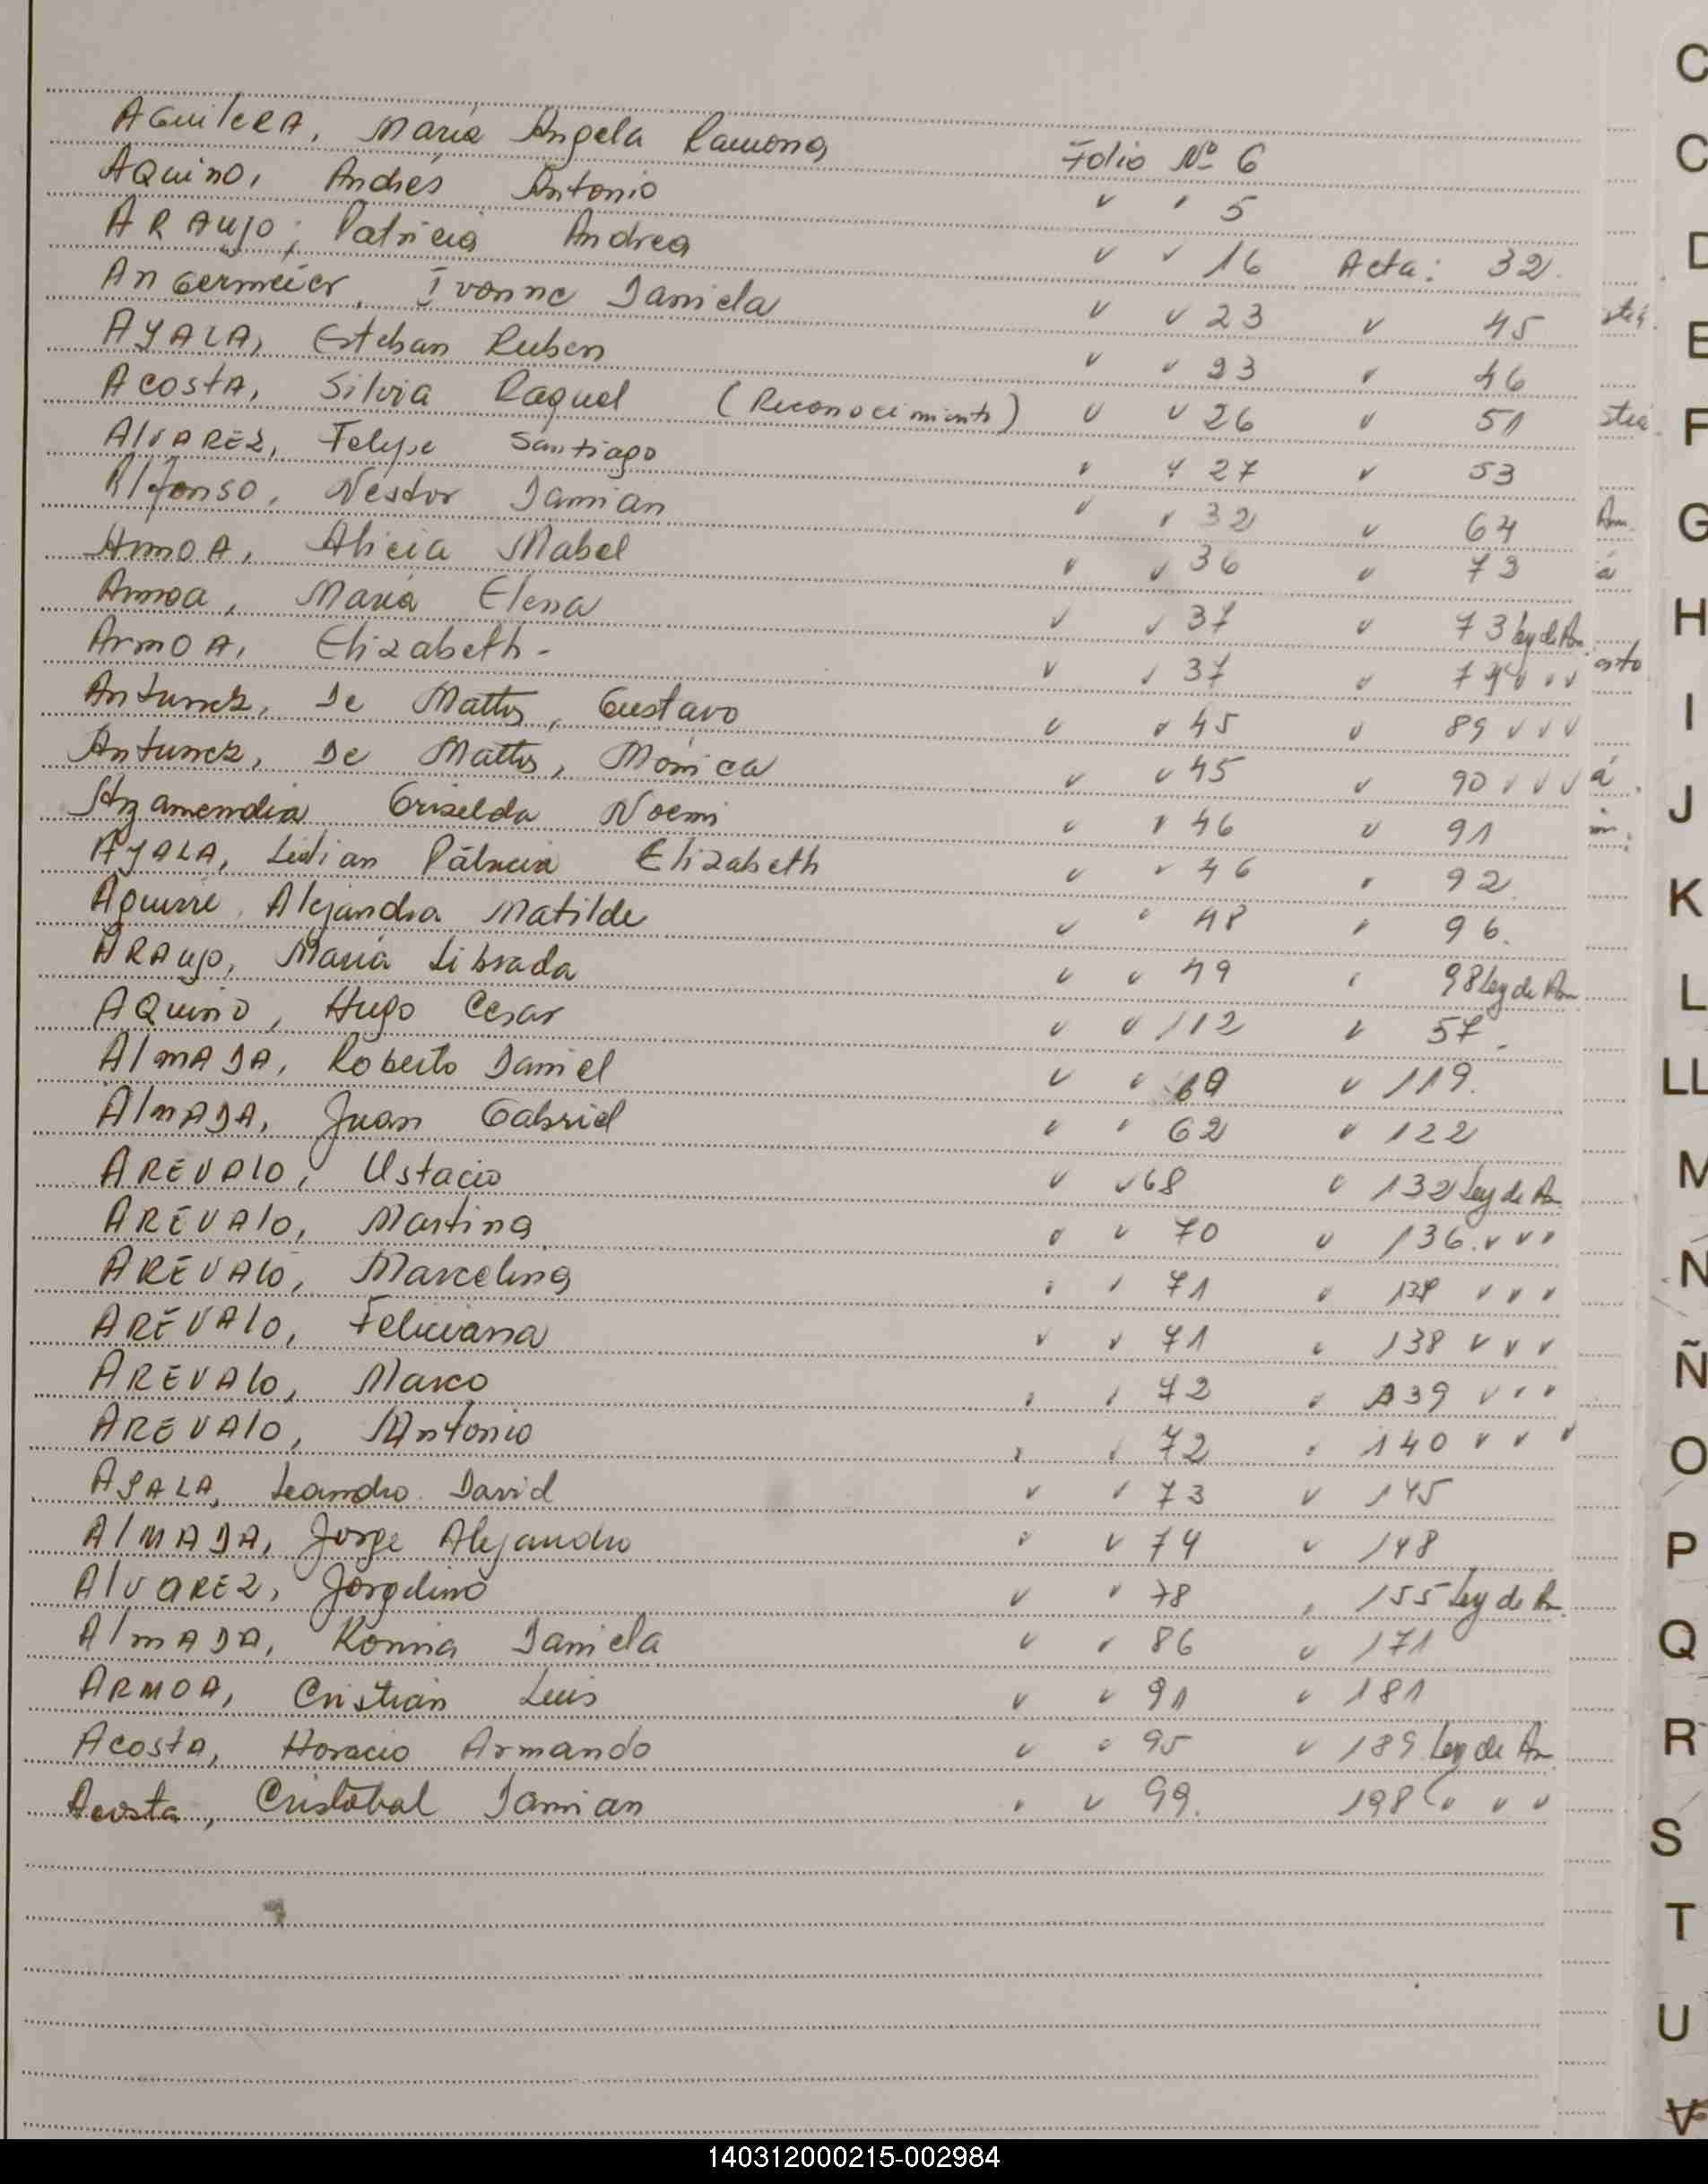 AGuileRA, María Angela Ramona Folio Nº 6
AQuino, Andrés Antonio " " 5
ARAujo; Patricia Andrea " " 16 Acta: 32.
AnGermeier, Ivonne Daniela " " 23 " 45
AYALA, Esteban Ruben " " 23 " 46
Acosta, Silvia Raquel (Reconocimiento) " " 26 " 51
AlvAREZ, Felipe Santiago " " 27 " 53
Alfonso, Nestor Damian " " 32 " 64
ArmoA, Alicia Mabel " " 36 " 73
Armoa, María Elena " " 37 " 73 ley de Am.
ArmoA, Elizabeth- " " 37 " 74 " " "
Antunez, De Mattos, Gustavo " " 45 " 89 " " "
Antunez, De Mattos, Mónica " " 45 " 90 " " "
Azamendia Griselda Noemi " " 46 " 91
AYALA, Lilian Patricia Elizabeth " " 46 " 92.
Aguirre, Alejandra Matilde " " 48 " 96.
ARAujo, María Librada " " 49 " 98 Ley de Am
AQuino, Hugo Cesar " " 112 " 57.
AlmADA, Roberto Daniel " " 60 " 119.
AlmADA, Juan Gabriel " " 62 " 122
ARÉVAlo, Ustacio " " 68 " 132 Ley de Am
ARÉVAlo, Martina " " 70 " 136. " " "
ARÉVAlo, Marcelina " " 71 " 137 " " "
ARÉVAlo, Feliciana " " 71 " 138 " " "
ARÉVAlo, Marco " " 72 " 139 " " "
AREVAlo, Antonio " " 72 " 140 " " "
AYALA, Leandro David " " 73 " 145
AlMADA, Jorge Alejandro " " 74 " 148
AlvaREZ, Jorgelina " " 78 " 155 Ley de Am.
AlmADA, Romina Daniela " " 86 " 171
ARMOA, Cristian Luis " " 91 " 181
Acosta, Horacio Armando " " 95 " 189 Ley de Am
Acosta, Cristobal Damian " " 99. 198 " " "
C
C
D
E
F
G
H
I
J
K
L
LL
M
N
Ñ
O
P
Q
R
S
T
U
V
140312000215-002984